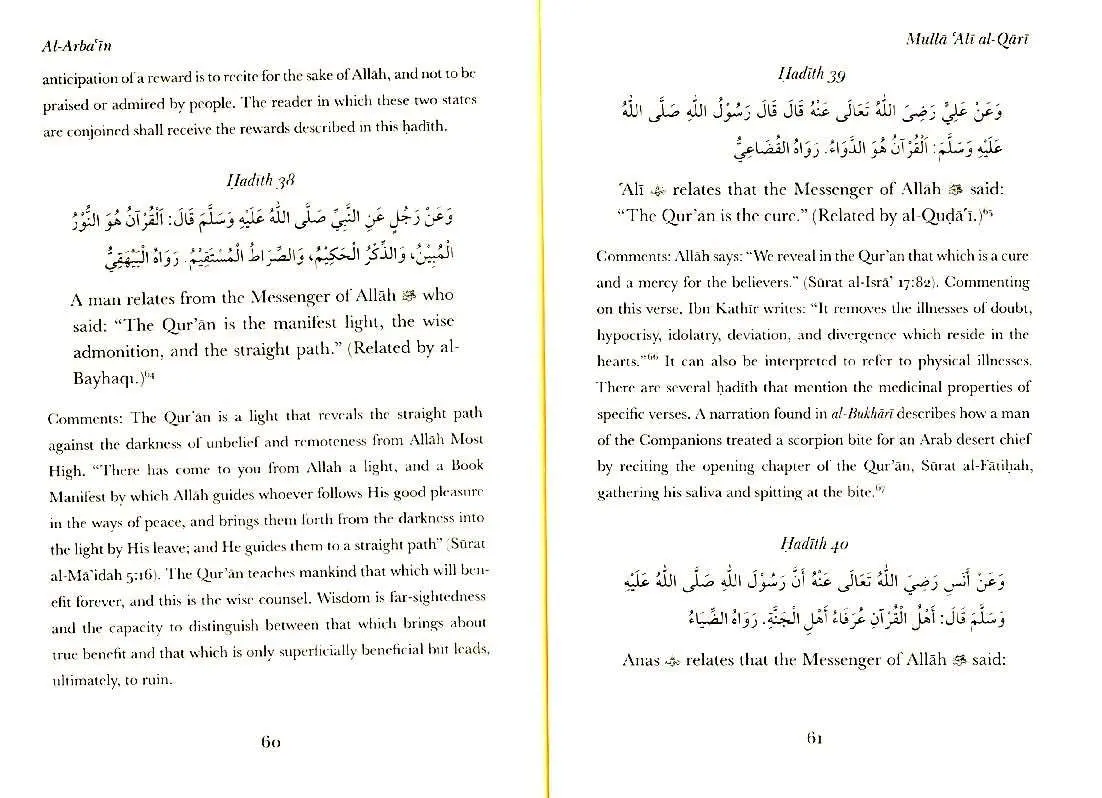 Al-Arbaʿīn
anticipation of a reward is to recite for the sake of Allāh, and not to be
praised or admired by people. The reader in which these two states
are conjoined shall receive the rewards described in this ḥadīth.
Ḥadīth 38
وَعَنْ رَجُلٍ عَنِ النَّبِيِّ صَلَّى اللهُ عَلَيْهِ وَسَلَّمَ قَالَ: اَلْقُرْآنُ هُوَ النُّوْرُ
الْمُبِيْنُ، وَالذِّكْرُ الْحَكِيْمُ، وَالصِّرَاطُ الْمُسْتَقِيْمُ. رَوَاهُ الْبَيْهَقِيُّ
A man relates from the Messenger of Allāh ﷺ who
said: “The Qurʾān is the manifest light, the wise
admonition, and the straight path.” (Related by al-
Bayhaqī.)⁶⁴
Comments: The Qurʾān is a light that reveals the straight path
against the darkness of unbelief and remoteness from Allāh Most
High. “There has come to you from Allāh a light, and a Book
Manifest by which Allāh guides whoever follows His good pleasure
in the ways of peace, and brings them forth from the darkness into
the light by His leave; and He guides them to a straight path” (Sūrat
al-Māʾidah 5:16). The Qurʾān teaches mankind that which will ben-
efit forever, and this is the wise counsel. Wisdom is far-sightedness
and the capacity to distinguish between that which brings about
true benefit and that which is only superficially beneficial but leads,
ultimately, to ruin.
60
Mullā ʿAlī al-Qārī
Ḥadīth 39
وَعَنْ عَلِيٍّ رَضِيَ اللهُ تَعَالَى عَنْهُ قَالَ قَالَ رَسُوْلُ اللهِ صَلَّى اللهُ
عَلَيْهِ وَسَلَّمَ: اَلْقُرْآنُ هُوَ الدَّوَاءُ. رَوَاهُ الْقُضَاعِيُّ
ʿAlī ؓ relates that the Messenger of Allāh ﷺ said:
“The Qurʾān is the cure.” (Related by al-Quḍāʿī.)⁶⁵
Comments: Allāh says: “We reveal in the Qurʾan that which is a cure
and a mercy for the believers.” (Sūrat al-Isrāʾ 17:82). Commenting
on this verse, Ibn Kathīr writes: “It removes the illnesses of doubt,
hypocrisy, idolatry, deviation, and divergence which reside in the
hearts.”⁶⁶ It can also be interpreted to refer to physical illnesses.
There are several ḥadīth that mention the medicinal properties of
specific verses. A narration found in al-Bukhārī describes how a man
of the Companions treated a scorpion bite for an Arab desert chief
by reciting the opening chapter of the Qurʾān, Sūrat al-Fātiḥah,
gathering his saliva and spitting at the bite.⁶⁷
Ḥadīth 40
وَعَنْ أَنَسٍ رَضِيَ اللهُ تَعَالَى عَنْهُ أَنَّ رَسُوْلَ اللهِ صَلَّى اللهُ عَلَيْهِ
وَسَلَّمَ قَالَ: أَهْلُ الْقُرْآنِ عُرَفَاءُ أَهْلِ الْجَنَّةِ. رَوَاهُ الضِّيَاءُ
Anas ؓ relates that the Messenger of Allāh ﷺ said:
61